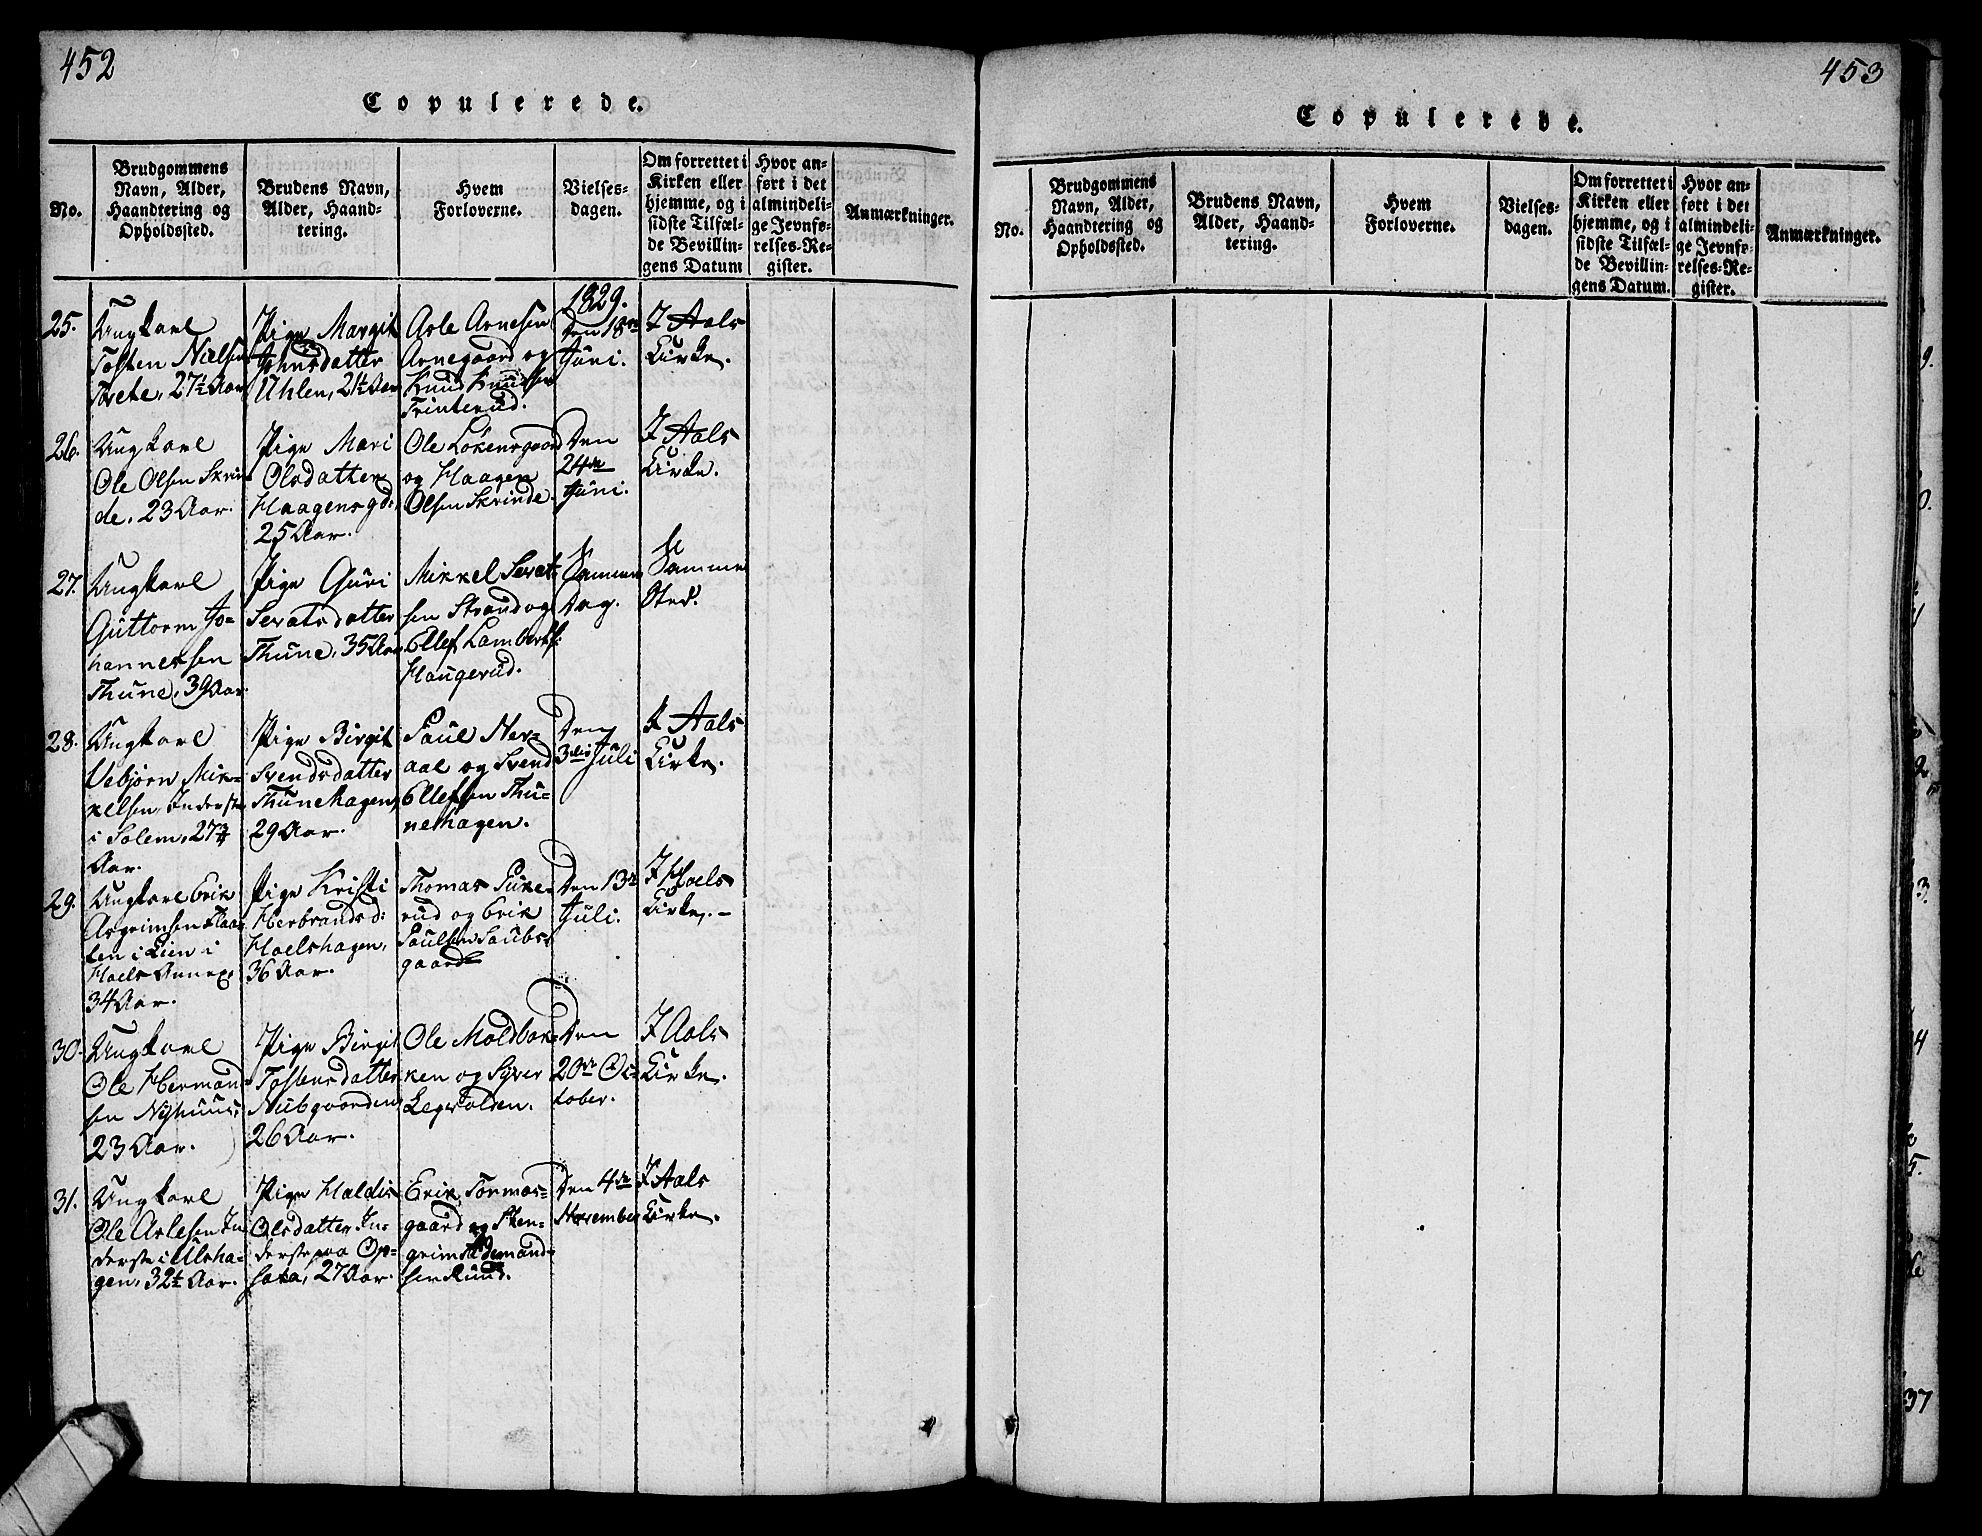 452
Copulerede.
No.
Brudgommens
Navn, Alder,
Haandtering og
Opholdssted.
Brudens Navn,
Alder, Haand-
tering.
Hvem
Forloverne.
Vielses-
dagen.
Om forrettet i
Kirken eller
hjemme, og i
sidste Tilfæl-
de Bevillin-
gens Datum
Hvor an-
ført i det
almindeli-
ge Jevnfø-
relses-Re-
gister.
Anmærkninger.
25.
Ungkarl
Tosten Nielsen
Torete, 27½ Aar
Pige Margit
Johnsdatter
Uhlen, 21½ Aar
Asle Arnesen
Arnegaard og
Knud Knudsen
Trinterud.
1829.
Den 18de
Juni.
I Aals
Kirke.
26.
Ungkarl
Ole Olsen Skrin-
de, 23 Aar.
Pige Mari
Olsdatter
Haagensgd:
25 Aar.
Ole Lokensgaard
og Haagen
Olsen Skrinde.
Den
24de
Juni.
I Aals
Kirke.
27.
Ungkarl
Guttorm Jo-
hannessen
Thune, 39 Aar
Pige Guri
Sevatsdatter
Thune, 35 Aar
Mikkel Sevat-
sen Strand og
Ellef Lambertss:
Haugerud.
Samme
Dag.
Samme
Sted.
28.
Ungkarl
Vebjørn Mik-
kelsen, Inderste
i Solem, 27¾
Aar.
Pige Birgit
Svendsdatter
Thunehagen,
29 Aar.
Paul Ner-
aal og Svend
Ellefsen Thu-
nehagen.
Den
3die Juli
I Aals
Kirke.
29.
Ungkarl Erik
Asgrimsen Flaa-
ten i Lien i
Hols Annex,
34 Aar.
Pige Kristi
Herbrandsd:
Hoelshagen,
36 Aar.
Thomas Puke-
rud og Erik
Paulsen Saubs-
gaard
Den 13de
Juli.
I Hoels
Kirke.-
30.
Ungkarl
Ole Herman-
sen Nyhuus,
23 Aar.
Pige Birgit
Tostensdatter
Nubgaarden
26 Aar.
Ole Moldbak-
ken og Syver
Legvolden.
Den
20de Oc-
tober.
I Aals
Kirke.
31.
Ungkarl
Ole Aslesen In-
derste i Ulsha-
gen, 32½ Aar.
Pige Haldis
Olsdatter In-
derste paa Op-
sata, 27 Aar.
Erik Tormos-
gaard og Sten-
grim Amand-
sen Ruud.
Den 4de
November
I Aals
Kirke.
453
Copulerede.
No.
Brudgommens
Navn, Alder,
Haandtering og
Opholdssted.
Brudens Navn,
Alder, Haand-
tering.
Hvem
Forloverne.
Vielses-
dagen.
Om forrettet i
Kirken eller
hjemme, og i
sidste Tilfæl-
de Bevillin-
gens Datum.
Hvor an-
ført i det
almindeli-
ge Jevnfø-
relses-Re-
gister.
Anmærkninger.
37